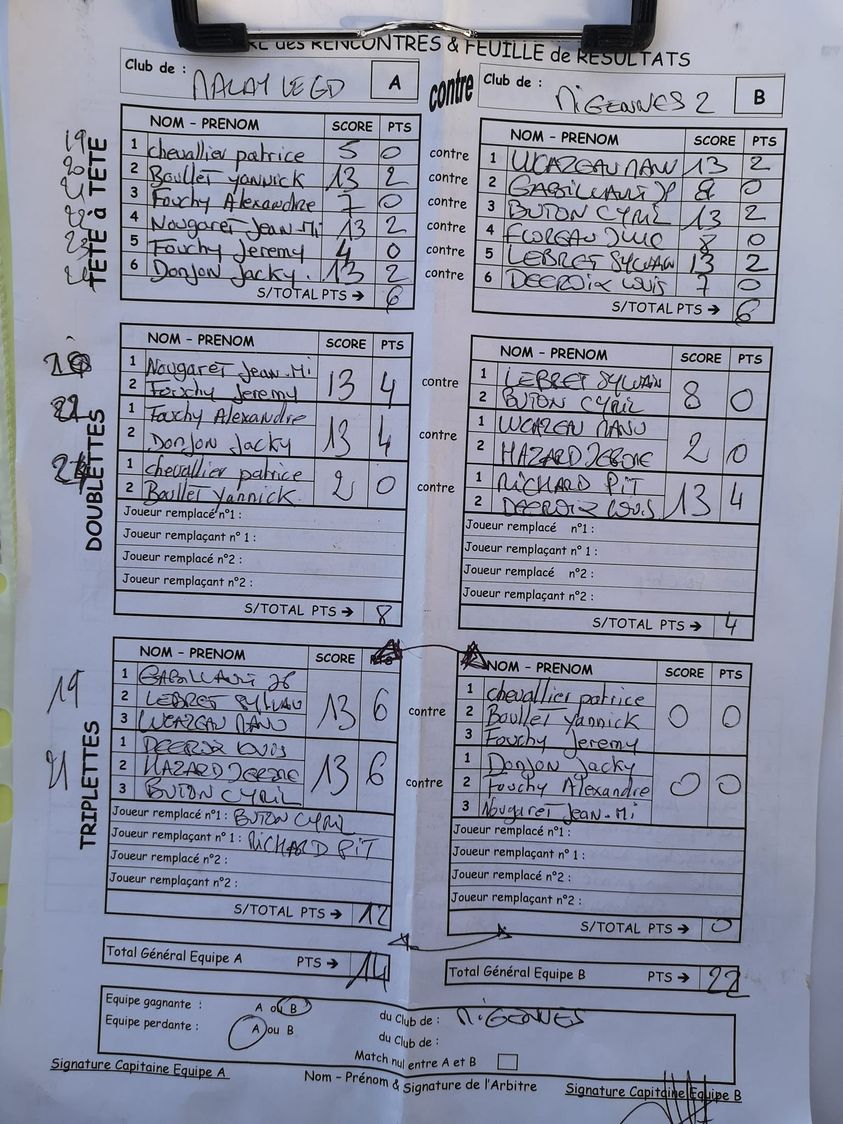 RE des RENCONTRES & FEUILLE de RESULTATS
Club de : MALAY LE GD A contre Club de : MIGENNES 2 B
TETE à TETE
19
20
21
22
23
24
NOM - PRENOM SCORE PTS NOM - PRENOM SCORE PTS
1 chevallier patrice 5 0 contre 1 LUCAZEAU MANU 13 2
2 Boullet yannick 13 2 contre 2 GABILLAULT JP 8 0
3 Fouchy Alexandre 7 0 contre 3 BUTON CYRIL 13 2
4 Nougaret Jean-Mi 13 2 contre 4 FLOREAU 8 0
5 Fouchy Jeremy 4 0 contre 5 LEBRET SYLVAIN 13 2
6 Donjon Jacky. 13 2 contre 6 DECROIX LOUIS 7 0
S/TOTAL PTS → 6 S/TOTAL PTS → 6
DOUBLETTES
NOM - PRENOM SCORE PTS NOM - PRENOM SCORE PTS
1 Nougaret Jean-Mi 13 4 contre 1 LEBRET SYLVAIN 8 0
2 Fouchy Jeremy 2 BUTON CYRIL
1 Fouchy Alexandre 13 4 contre 1 LUCAZEAU MANU 2 0
2 Donjon Jacky 2 HAZARD JEROME
1 chevallier patrice 2 0 contre 1 RICHARD PIT 13 4
2 Boullet Yannick 2 DECROIX LOUIS
Joueur remplacé n°1 : Joueur remplacé n°1 :
Joueur remplaçant n° 1 : Joueur remplaçant n° 1 :
Joueur remplacé n°2 : Joueur remplacé n°2 :
Joueur remplaçant n°2 : Joueur remplaçant n°2 :
S/TOTAL PTS → 8 S/TOTAL PTS → 4
TRIPLETTES
19
21
NOM - PRENOM SCORE NOM - PRENOM SCORE PTS
1 GABILLAULT 13 6 contre 1 chevallier patrice 0 0
2 LEBRET SYLVAIN 2 Boullet yannick
3 LUCAZEAU MANU 3 Fouchy Jeremy
1 DECROIX LOUIS 13 6 contre 1 Donjon Jacky 0 0
2 HAZARD JEROME 2 Fouchy Alexandre
3 BUTON CYRIL 3 Nougaret Jean-Mi
Joueur remplacé n°1 : BUTON CYRIL Joueur remplacé n°1 :
Joueur remplaçant n° 1 : RICHARD PIT Joueur remplaçant n°1 :
Joueur remplacé n°2 : Joueur remplacé n°2 :
Joueur remplaçant n°2 : Joueur remplaçant n°2 :
S/TOTAL PTS → 12 S/TOTAL PTS → 0
Total Général Equipe A PTS → 14 Total Général Equipe B PTS → 22
Equipe gagnante : A ou B du Club de : MIGENNES
Equipe perdante : A ou B du Club de :
Match nul entre A et B
Signature Capitaine Equipe A Nom - Prénom & Signature de l'Arbitre Signature Capitaine Equipe B